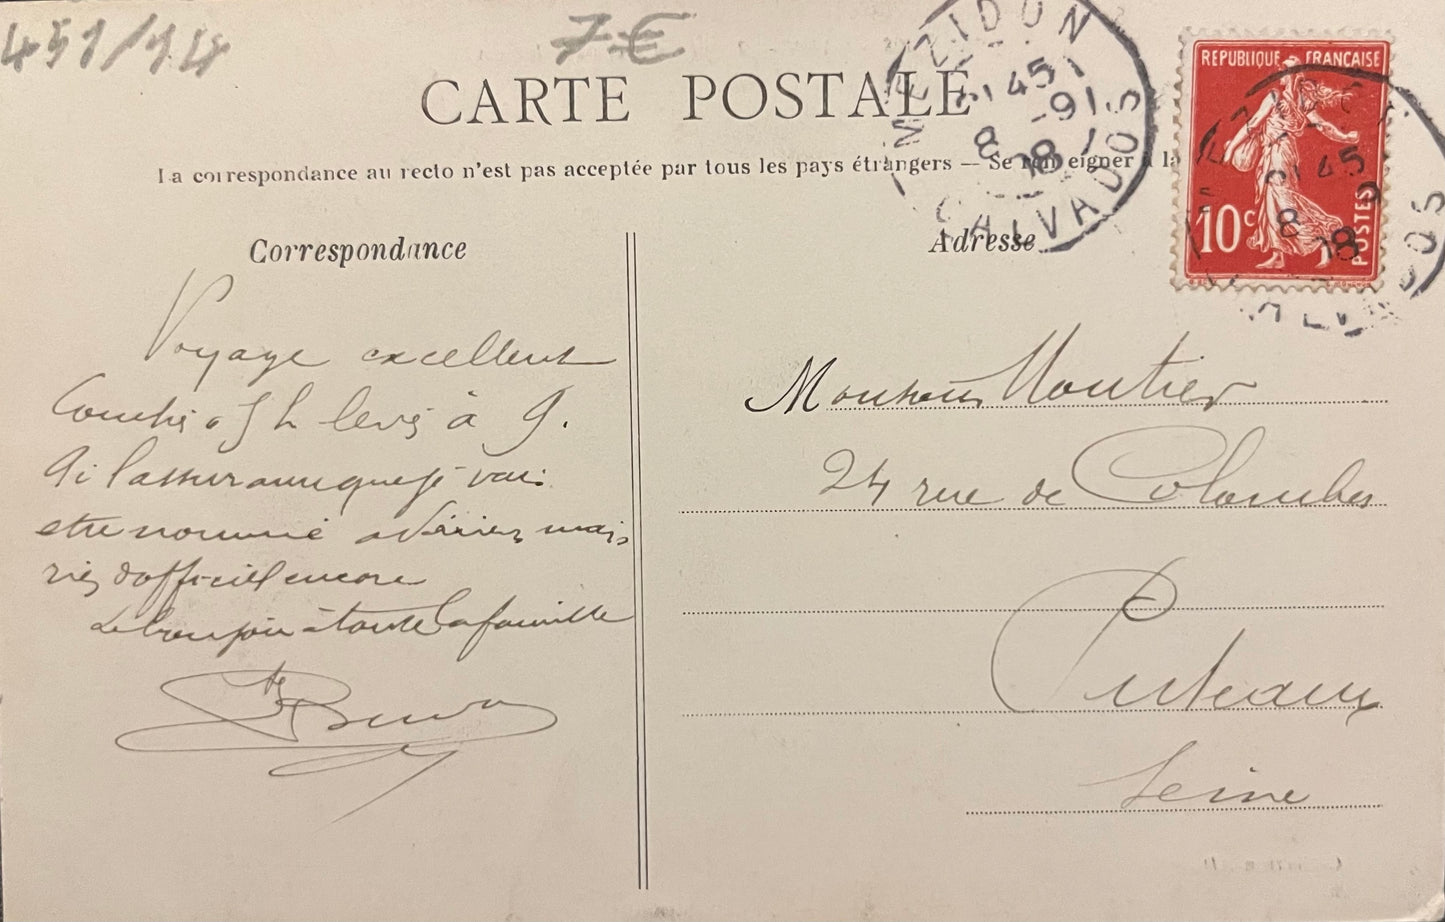 451/14
7€
CARTE POSTALE
La correspondance au recto n'est pas acceptée par tous les pays étrangers — Se renseigner à la
Correspondance
Adresse
MEZIDON
45
8 -9
08
CALVADOS
REPUBLIQUE FRANÇAISE
10c
POSTES
Voyage excellent
Couché 5 h levé à 9.
Ai l'assurance que je vais
etre nommé mais
rien d'officiel encore
Le bonjour à toute la famille
Monsieur Moutier
24 rue de Colombes
Puteaux
Seine